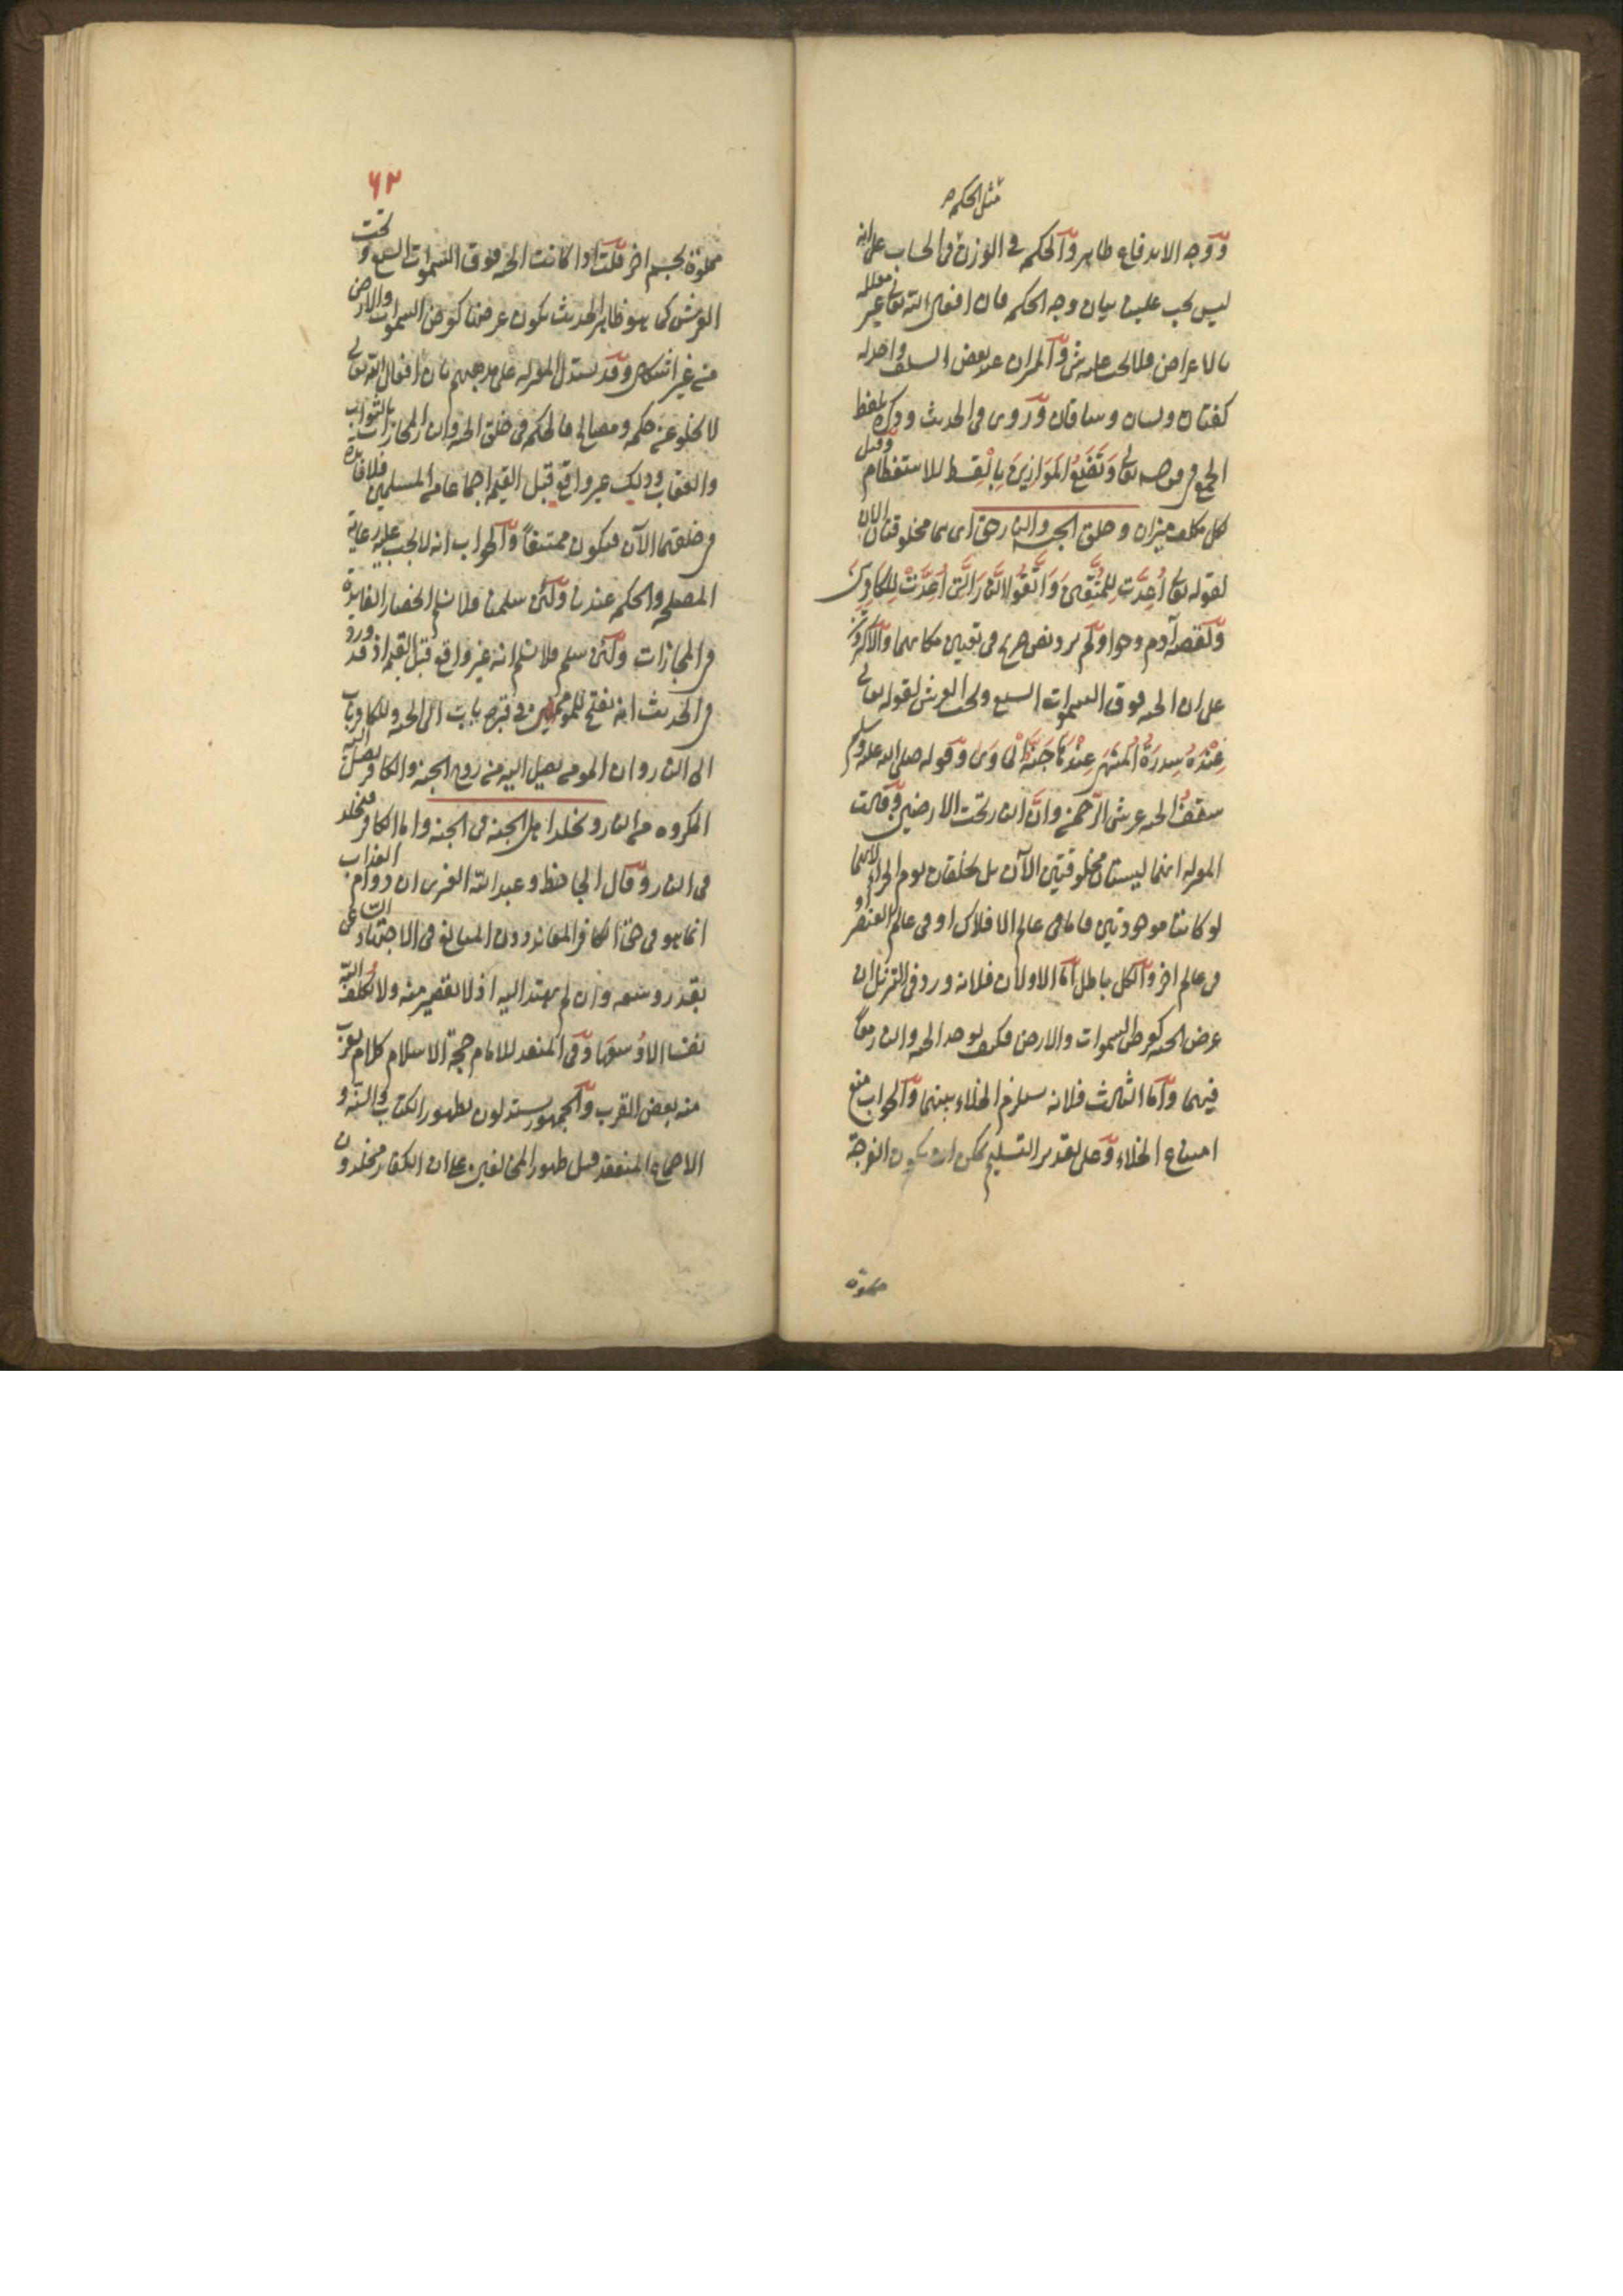 مثل الحكمة
ووجه الاندفاع ظاهر والحكمة في الوزن في الحساب على انه
ليس يجب علينا بيان وجه الحكمة فان افعال الله تعالى غير معللة
بالاغراض والميزان عند بعض السلف واحد له
كفتان ولسان وساقان وروى في الحديث وذكره بلفظ
الجمع في قوله تعالى وَنَضَعُ الْمَوَازِينَ بِالْقِسْطِ للاستعظام وقيل
لكل مكلف ميزان وخلق الجنة والنار حق اى هما مخلوقتان الان
لقوله تعالى اُعِدَّتْ لِلْمُتَّقِينَ وَاتَّقُوا النَّارَ الَّتِى اُعِدَّتْ لِلْكَافِرِينَ
ولقصة آدم وحوا ولم يرد نص صريح في تعيين مكانهما والاكثرون
على ان الجنة فوق السموات السبع وتحت العرش لقوله تعالى
عِنْدَ سِدْرَةِ الْمُنْتَهَى عِنْدَهَا جَنَّةُ الْمَأْوَى وقوله صلى الله عليه وسلم
سقف الجنة عرش الرحمن وان النار تحت الارضين وقالت
المعتزلة انهما ليستا مخلوقتين الآن بل تخلقان يوم الجزاء لانهما
لو كانتا موجودتين فاما في عالم الافلاك او في عالم العنصر او
في عالم اخر والكل باطل اما الاولان فلانه ورد في التنزيل ان
عرض الجنة كعرض السموات والارض فكيف يوجد الجنة والنار معا
فيهما واما الثالث فلانه يستلزم الخلاء بينهما والجواب منع
امتناع الخلاء وعلى تقدير التسليم يمكن ان يكون الفرجة
مملوة
٦٢
مملوة بجسم اخر قلت اذا كانت الجنة فوق السموات السبع وتحت
العرش كما هو ظاهر الحديث يكون عرضها كعرض السموات والارض
من غير اشكال وقد يستدل المعتزلة على مذهبهم بان افعال الله تعالى
لا تخلو عن حكمة ومصالح فالحكمة في خلق الجنة والنار المجازات بالثواب
والعقاب وذلك غير واقع قبل القيمة اجماعا من المسلمين فلا فائدة
في خلقهما الآن فيكون ممتنعا والجواب انه لا يجب عليه رعاية
المصلحة والحكمة عندنا ولئن سلمنا فلا نسلم انحصار الفايدة
في المجازات ولئن سلم فلا نسلم انه غير واقع قبل القيمة اذ قد ورد
في الحديث انه يفتح للمؤمنين في قبره باب الى الجنة وللكافر باب
الى النار وان المومن يصل اليه من روح الجنة والكافر يصل اليه
المكروه من النار ويخلد اهل الجنة في الجنة واما الكافر فيخلد
في النار وقال الجاحظ وعبد الله العنبرى ان دوام العذاب
انما هو في حق الكافر المعاند دون المبالغ في الاجتهاد الساعى
بقدر وسعه وان لم يهتد اليه اذ لا تقصير منه ولا يكلف الله
نفسا الا وسعها وفي المنقذ للامام حجة الاسلام كلام يقرب
منه بعض القرب والجمهور يستدلون بظهور الكتاب والسنة و
الاجماع المنعقد قبل ظهور المخالفين على ان الكفار مخلدون